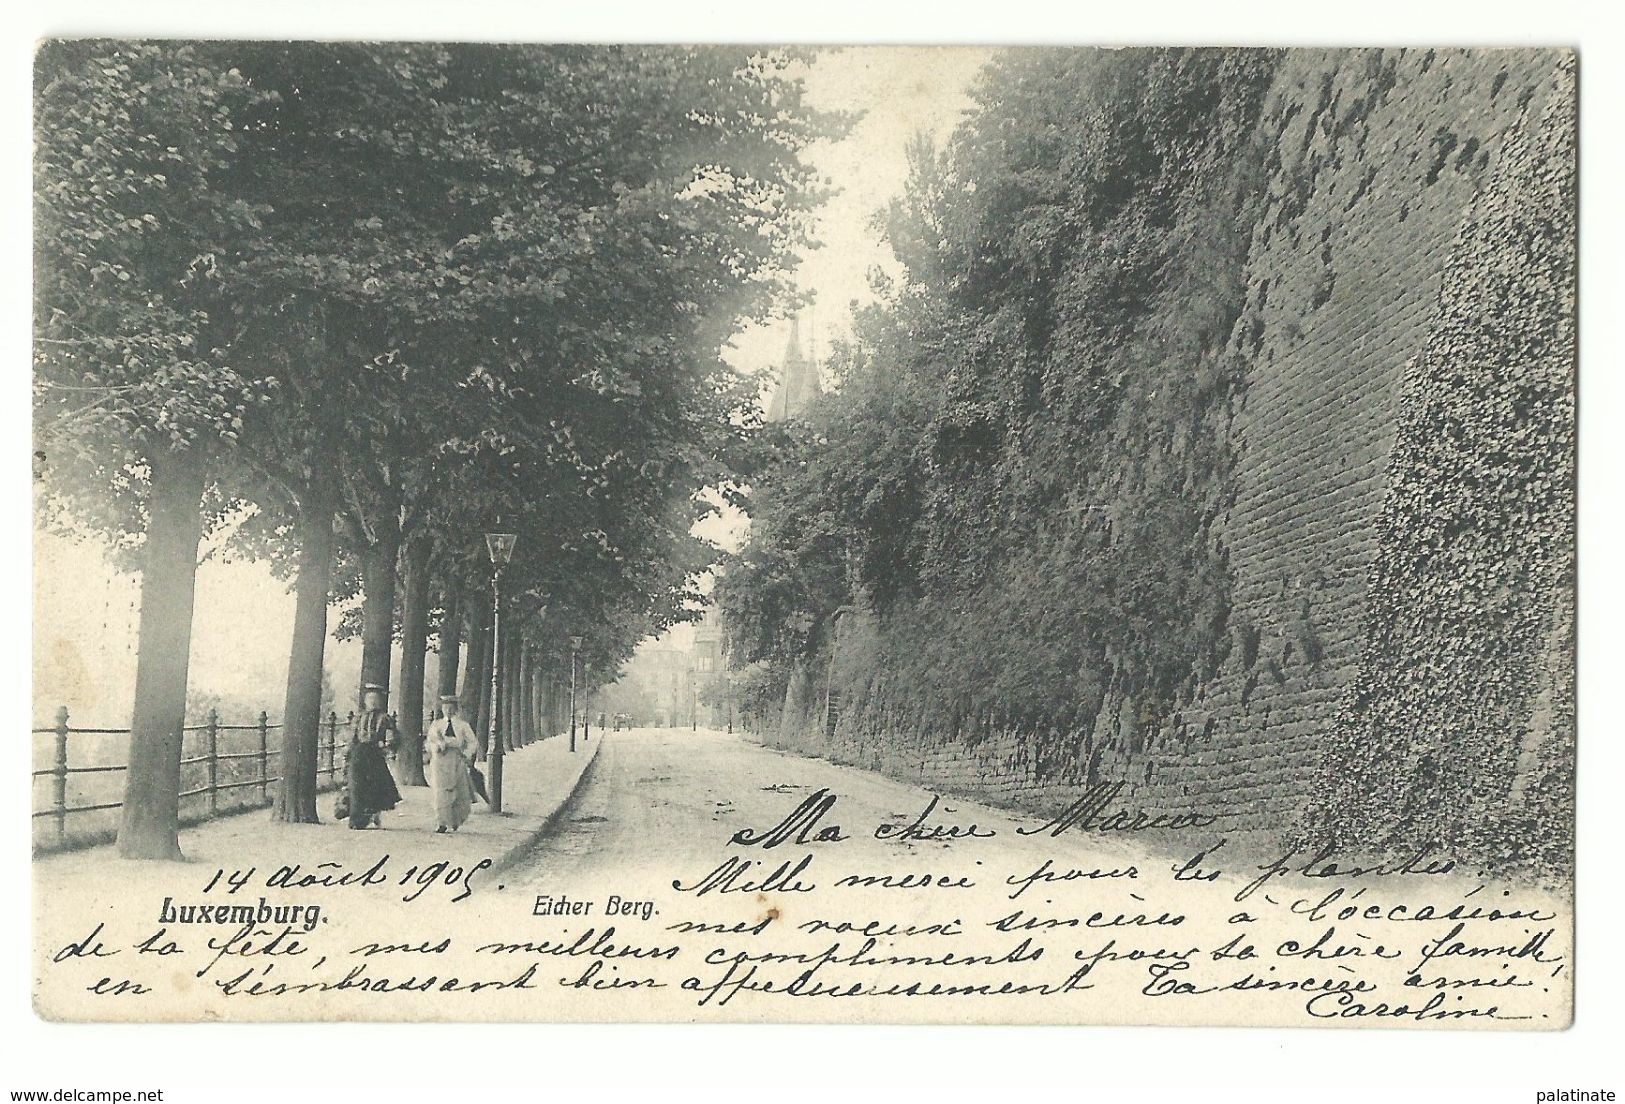 Ma chère Maria
14 août 1905.
Mille merci pour les plantes,
Luxemburg.
Eicher Berg.
mes voeux sincères à l'occasion
de ta fête, mes meilleurs compliments pour ta chère famille,
en t'embrassant bien affectueusement Ta sincère amie!
Caroline.
www.delcampe.net
palatinate